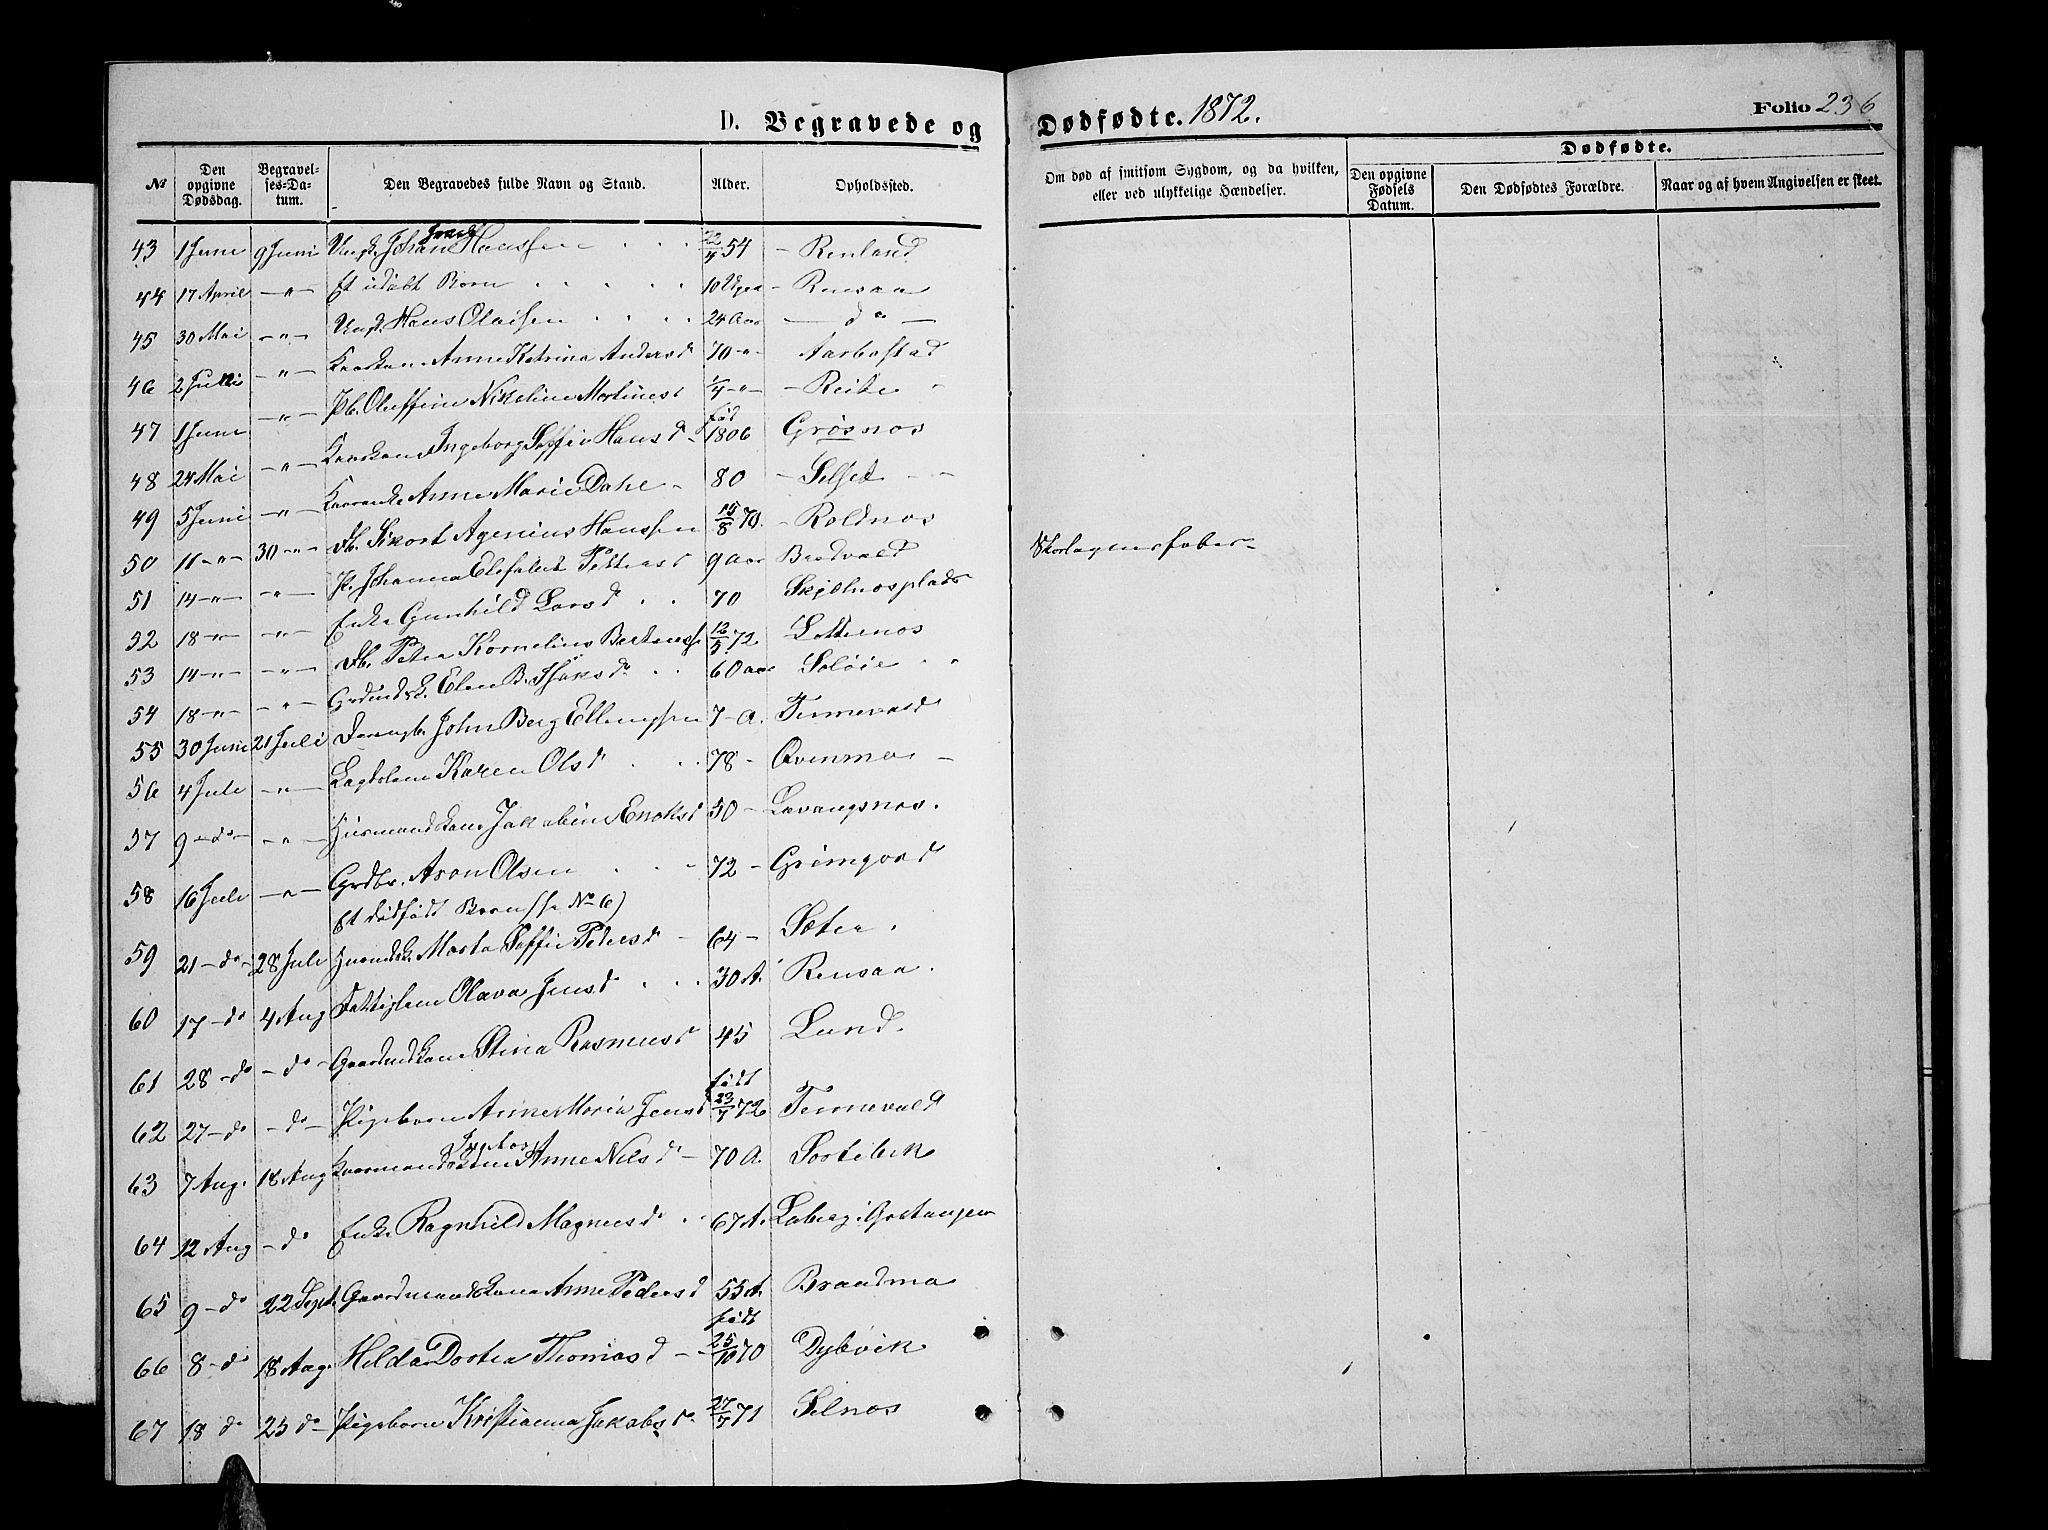 D. Begravede og Dødfødte. 1872. Folio 236
№ Den opgivne Dødsdag. Begravelses-Datum. Den Begravedes fulde Navn og Stand. Alder. Opholdssted. Om død af smitsom Sygdom, og da hvilken, eller ved ulykkelige Hændelser. Dødfødte. Den opgivne Fødsels Datum. Den Dødfødtes Forældre. Naar og af hvem Angivelsen er skeet.
43 1 Juni 9 Juni Ungk. Johan Hanssen 54 Renland
44 17 April -"- Et udøbt Barn 10 Uger Rensaa
45 30 Mai -"- Ungk. Hans Olaisen 24 Aar do
46 2 Juni -"- Anne Katrina Andersd 70 -"- Aarbostad
47 1 Juni -"- Pb. Oluffine Nikoline Martinesd 1/4 -"- Reite
48 24 Mai -"- Ingeborg Soffie Hansd født 1806 Grøsnes
49 5 Juni -"- Anne Marie Dahl 80 Selset
50 11 -"- 30 -"- Sivert Agenius Hanssen 15/8 70. Roldnes
51 14 -"- -"- P. Johanna Elefalet Petters d 9 Aar Bredvald Skarlagensfeber
52 18 -"- -"- Enke Gunhild Larsd 70 Skjelnesplads
53 14 -"- -"- Peter Kornelius 12/5 72. Lotternes
54 18 -"- -"- Elen B. Isaksd 60 Aar Soløie
55 30 Juni 21 Juli John Berg Ellingsen 7 A. Tennevald
56 4 Juli -"- Karen Olsd 78 Ovenmo
57 9 -do- -"- Husmandskone Jakobine Enoksd 50 Lavangsnes.
58 16 Juli -"- Grdbr. Aron Olsen 72 Grimgard
Et dødfødt Barn (se No 6)
59 21 -do- 28 Juli Marta Soffie Pedersd 64 Sæter
60 17 -do 4 Aug Fattiglem Olava Jensd 30 A. Rensaa.
61 28 -do -do- Gaardmdkone Stina Rasmusd 45 Lund.
62 27 -do -do- Pigebarn Anne Maria Jensd født 23/7 72 Tennevald
63 7 Aug. 18 Aug Anne Nilsd 70 A. Sørlibek
64 12 Aug -do Enke Ragnhild Magnusd 67 A. Laberg i Gratangen
65 9 -do 22 Sept. Gaardmandskone Anne Pedersd 55 A. Brandmo
66 8 -do 18 Aug. Hilda Dortea Thomasd født 25/10 70 Dybvik
67 18 do 25 do Pigebarn Kristianna Jakobsd 27/7 71 Selnes